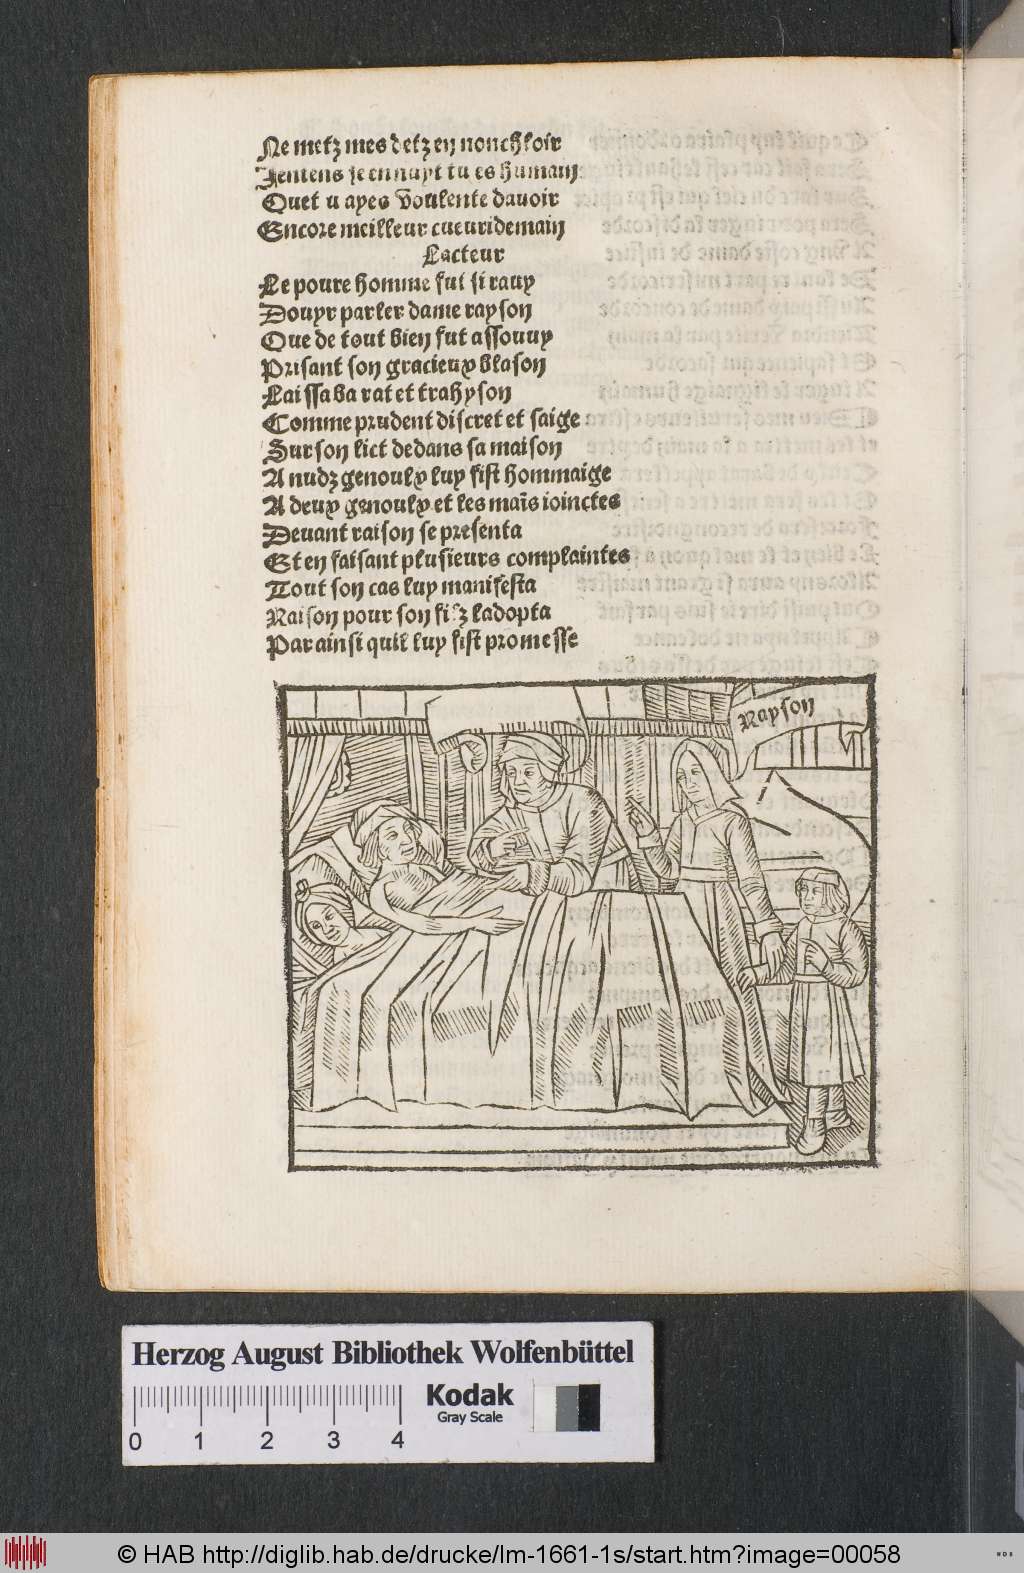 Ne metz mes detz en nonchloir
Jentens se ennuyt tu es humain
Quet u ayes voulente dauoir
Encore meilleur cueuridemain
Lacteur
Le poure homme fut si rauy
Douyr parler dame rayson
Que de tout bien fut assouuy
Prisant son gracieux blason
Laissa ba rat et trahyson
Comme prudent discret et saige
Sur son lict dedans sa maison
A nudz genoulx luy fist hommaige
A deux genoulx et les maīs ioinctes
Deuant raison se presenta
Et en faisant plusieurs complaintes
Tout son cas luy manifesta
Raison pour son filz ladopta
Par ainsi quil luy fist promesse
Rayson
Herzog August Bibliothek Wolfenbüttel
Kodak
Gray Scale
0 1 2 3 4
© HAB http://diglib.hab.de/drucke/lm-1661-1s/start.htm?image=00058